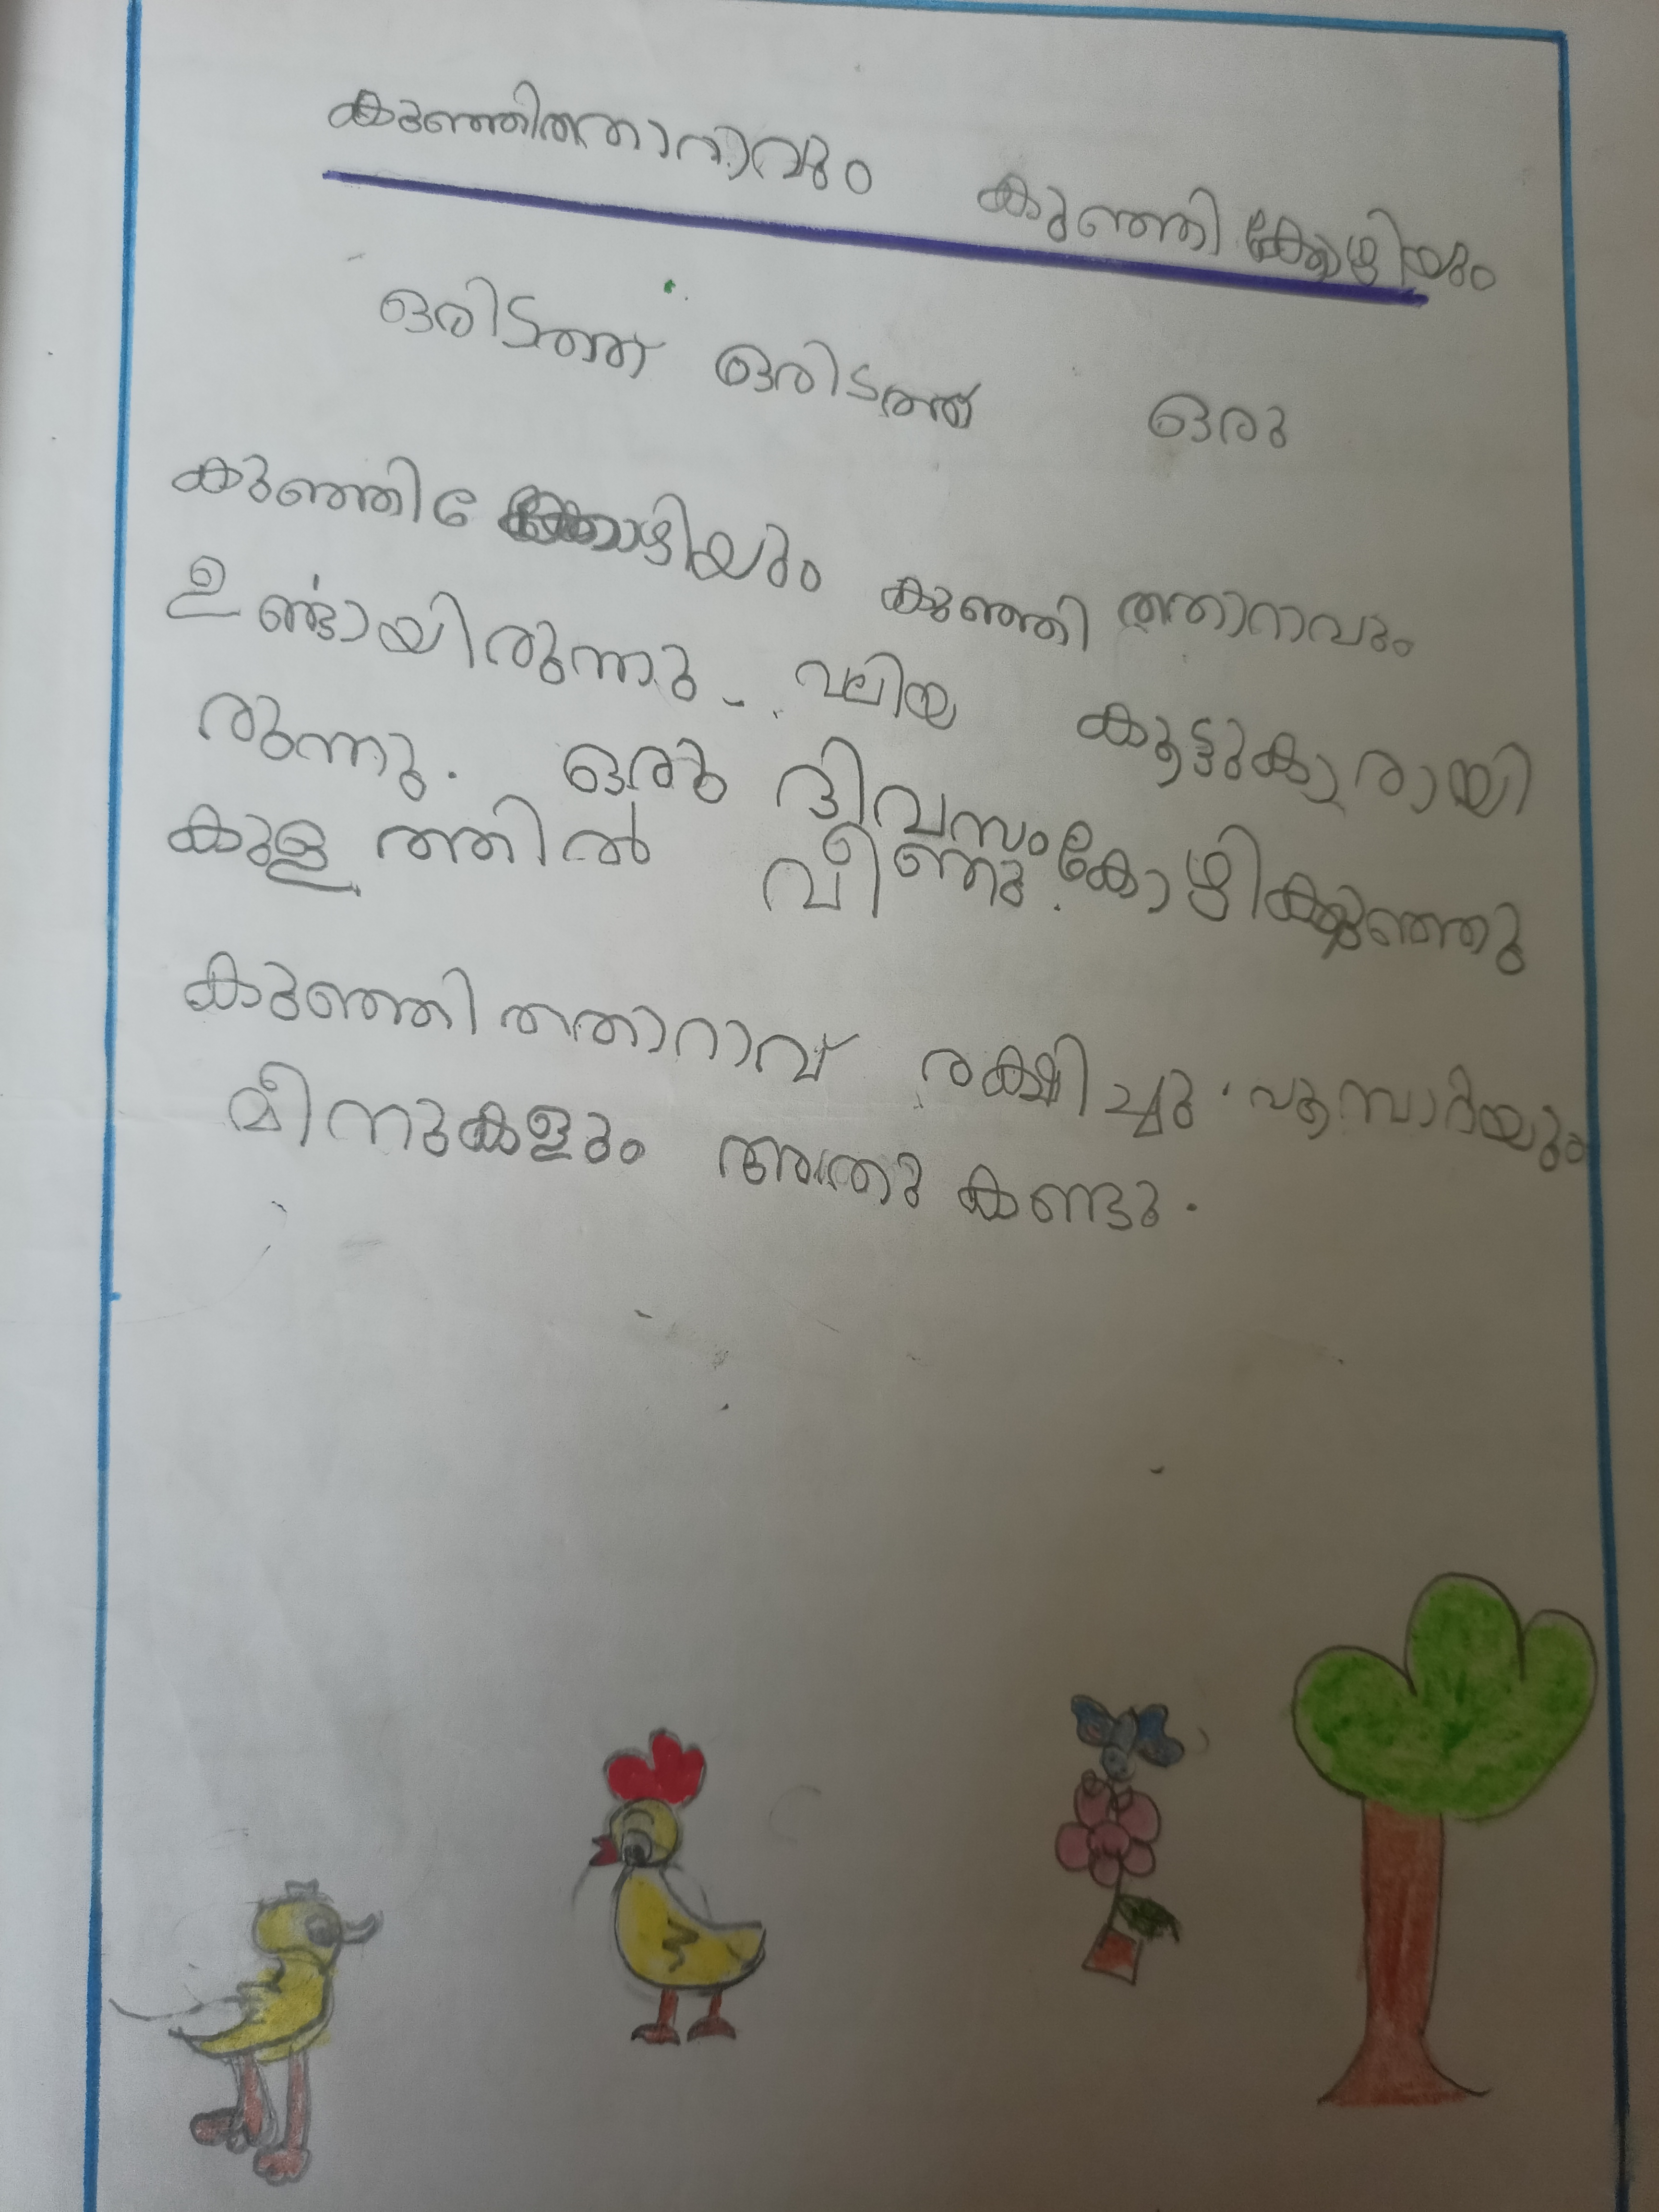 കുഞ്ഞിത്താറാവും കുഞ്ഞി കോഴിയും
ഒരിടത്ത് ഒരിടത്ത് ഒരു
കുഞ്ഞിക്കോഴിയും കുഞ്ഞി ത്താറാവും
ഉണ്ടായിരുന്നു. വലിയ കൂട്ടുകാരായി
രുന്നു. ഒരു ദിവസം കോഴികുഞ്ഞു
കുളത്തിൽ വീണു.
കുഞ്ഞിത്താറാവ് രക്ഷിച്ചു. പൂമ്പാറ്റയും
മീനുകളും അതു കണ്ടു.